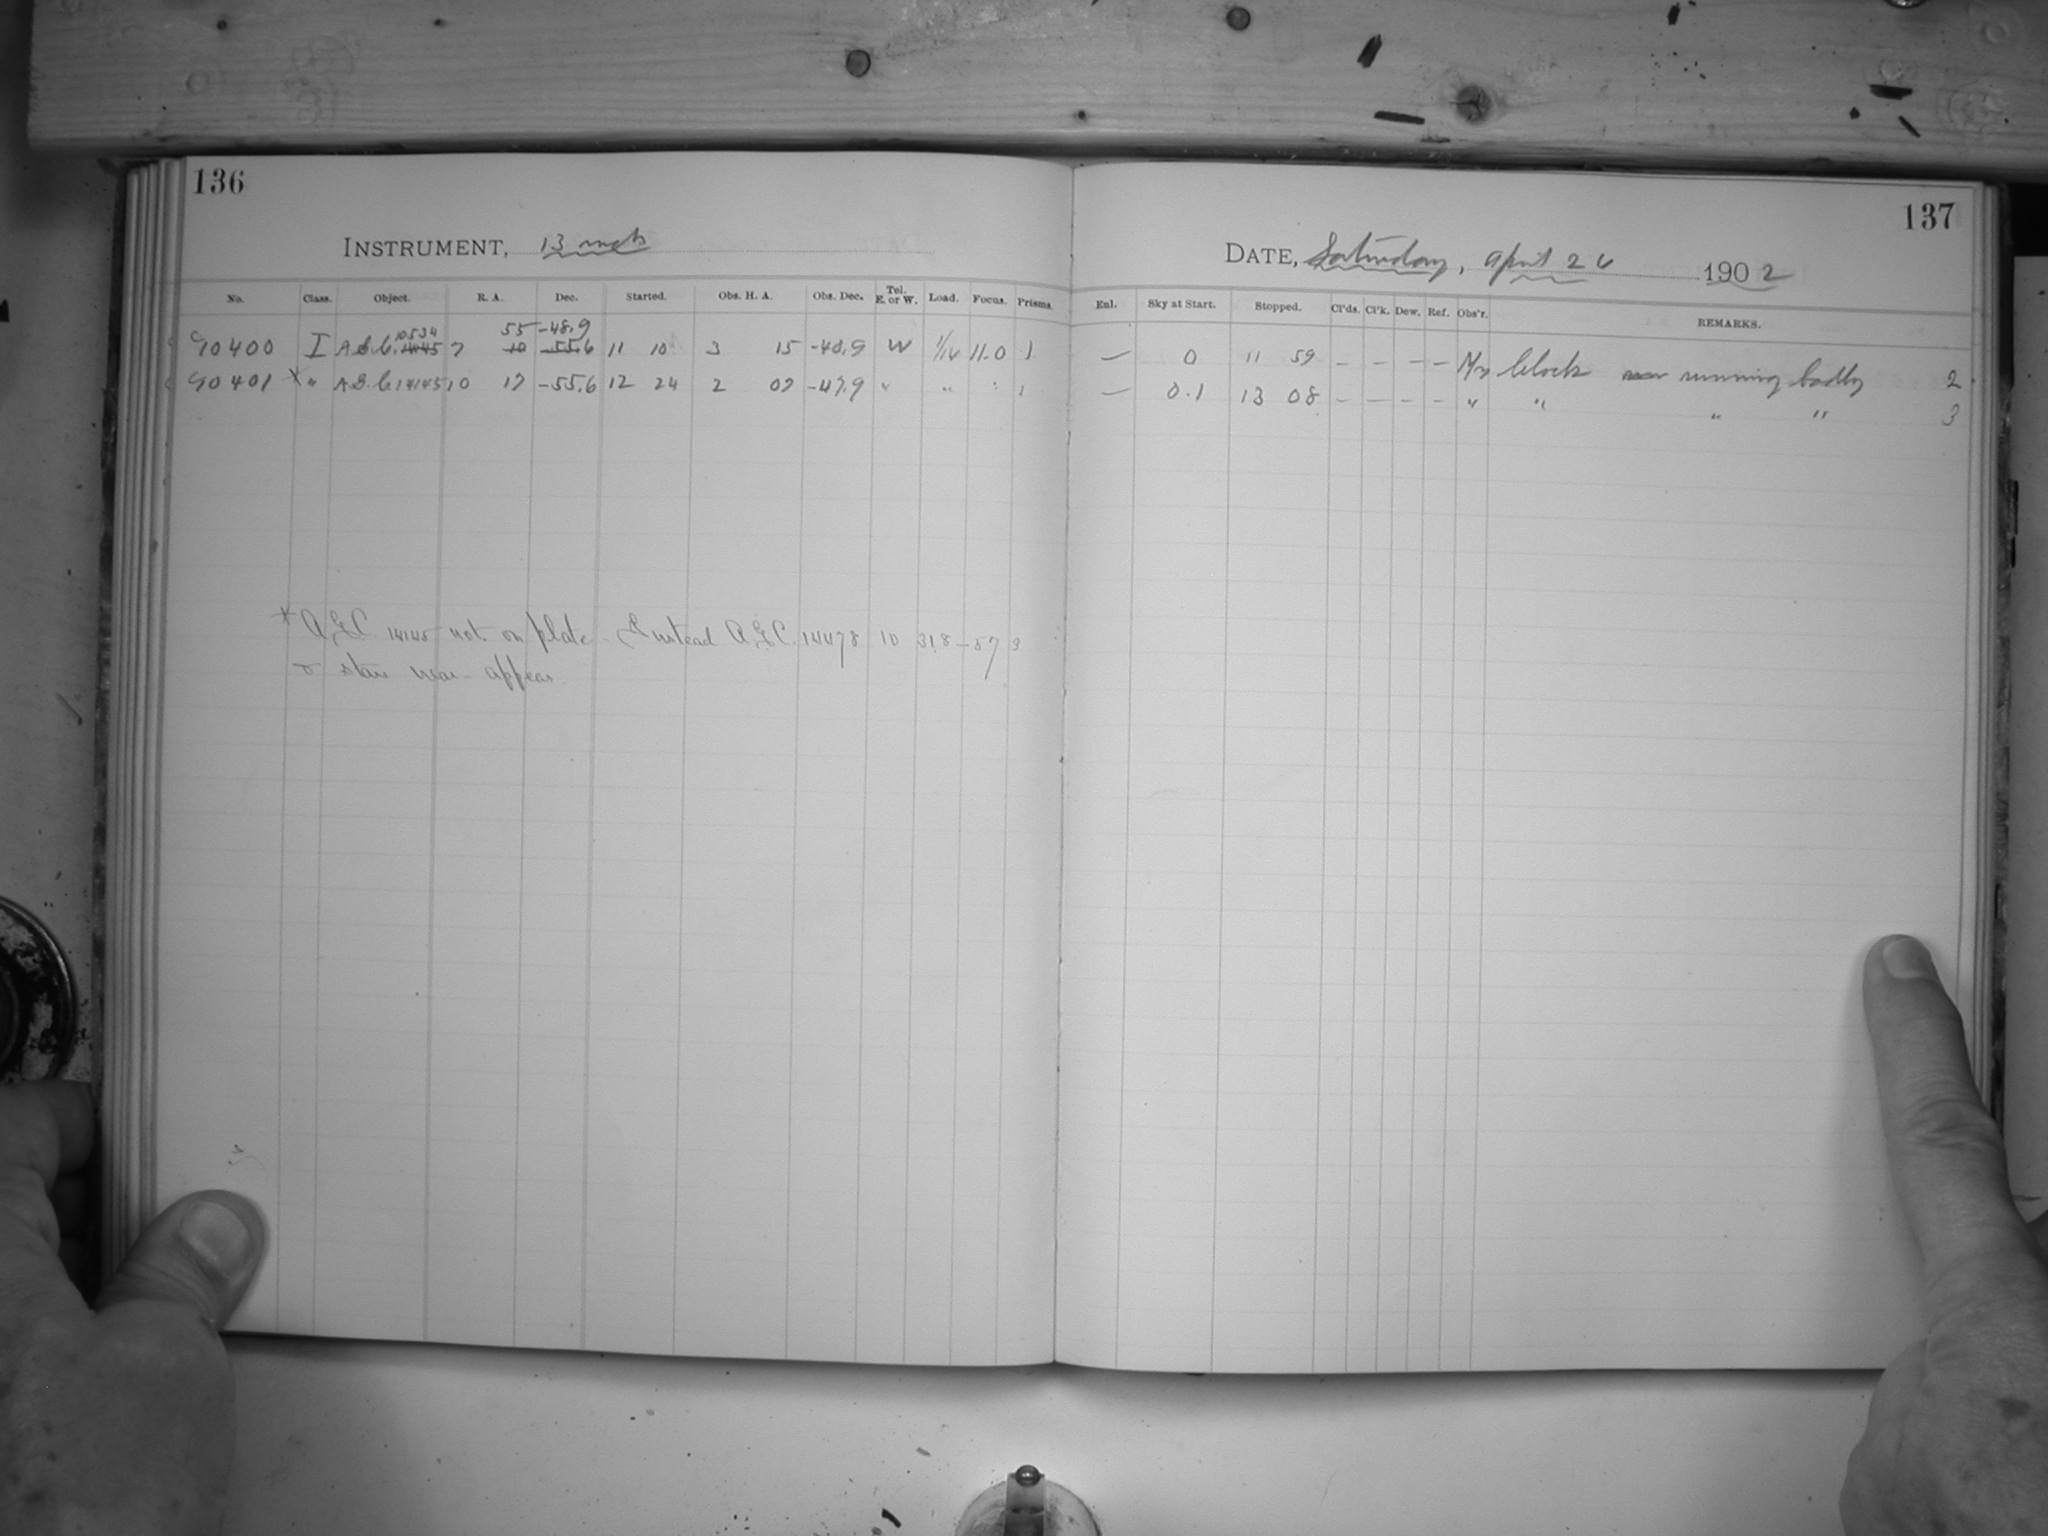 136
INSTRUMENT, 13 inch
No. Class. Object. R. A. Dec. Started. Obs. H. A. Obs. Dec. Tel. E. or W. Load. Focus. Prisms.
10534 55 -48.9
90400 I A.G.C. 14145 7 10 -55.6 11 10 3 15 -40.9 W 1/14 11.0 1
90401 * " A.G.C. 14145 10 17 -55.6 12 24 2 07 -47.9 " " " 1
* A.G.C. 14145 not on plate - Instead A.G.C. 14478 10 31.8 -57 3
& stars near appear.
137
DATE, Saturday, April 26 1902
Enl. Sky at Start. Stopped. Cl'ds. Cl'k. Dew. Ref. Obs'r. REMARKS.
— 0 11 59 - - - - Clock running badly 2
— 0.1 13 08 - - - - " " " " 3